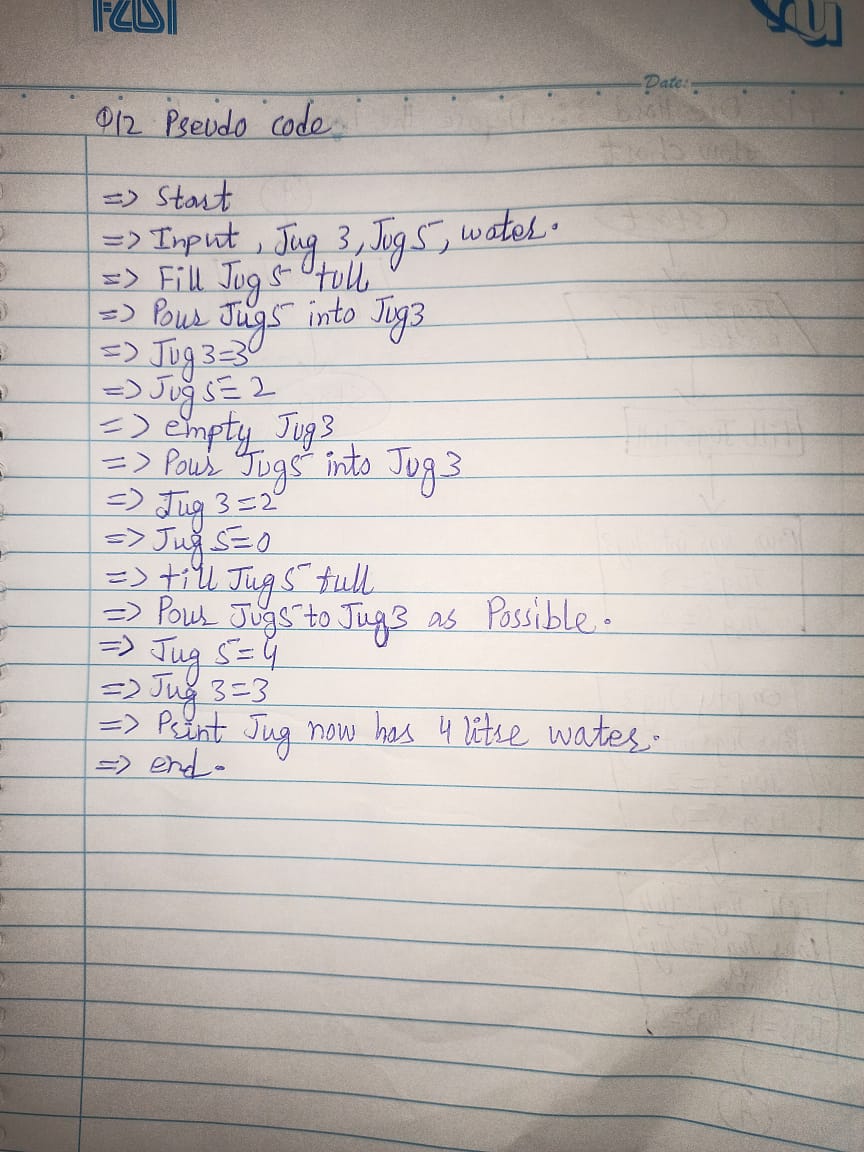 Date:
Q12 Pseudo code
=> Start
=> Input, Jug 3, Jug 5, water.
=> Fill Jug 5 full
=> Pour Jug5 into Jug3
=> Jug 3=3
=> Jug 5=2
=> empty Jug3
=> Pour Jug5 into Jug 3
=> Jug 3=2
=> Jug 5=0
=> fill Jug 5 full
=> Pour Jug5 to Jug3 as Possible.
=> Jug 5=4
=> Jug 3=3
=> Print Jug now has 4 litre water.
=> end.